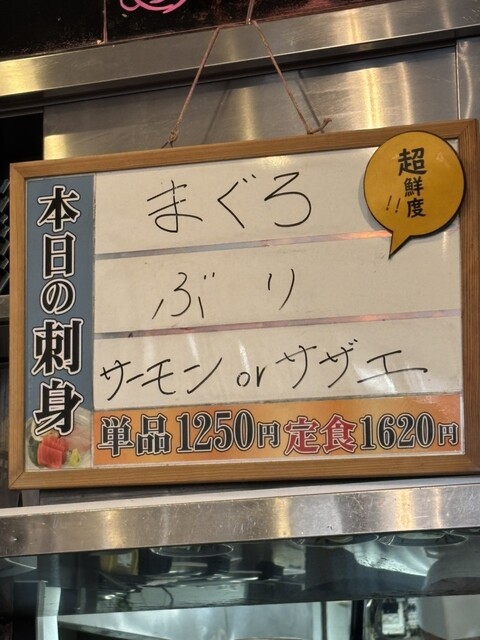 本日の刺身
まぐろ
超鮮度!!
ぶり
サーモン or サザエ
単品1250円 定食1620円